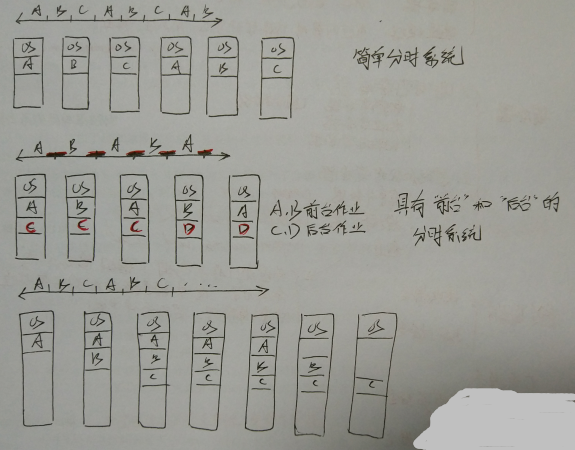 A, B, C, A, B, C, A, B
OS OS OS OS OS OS
A B C A B C
简单分时系统
A B A B A
OS OS OS OS OS
A B A B A
C C C D D
A.B 前台作业
C.D 后台作业
具有"前台"和"后台"的
分时系统
A, B, C, A, B, C, ....
OS OS OS OS OS OS OS
A A A A A
B B B B B
C C C C C